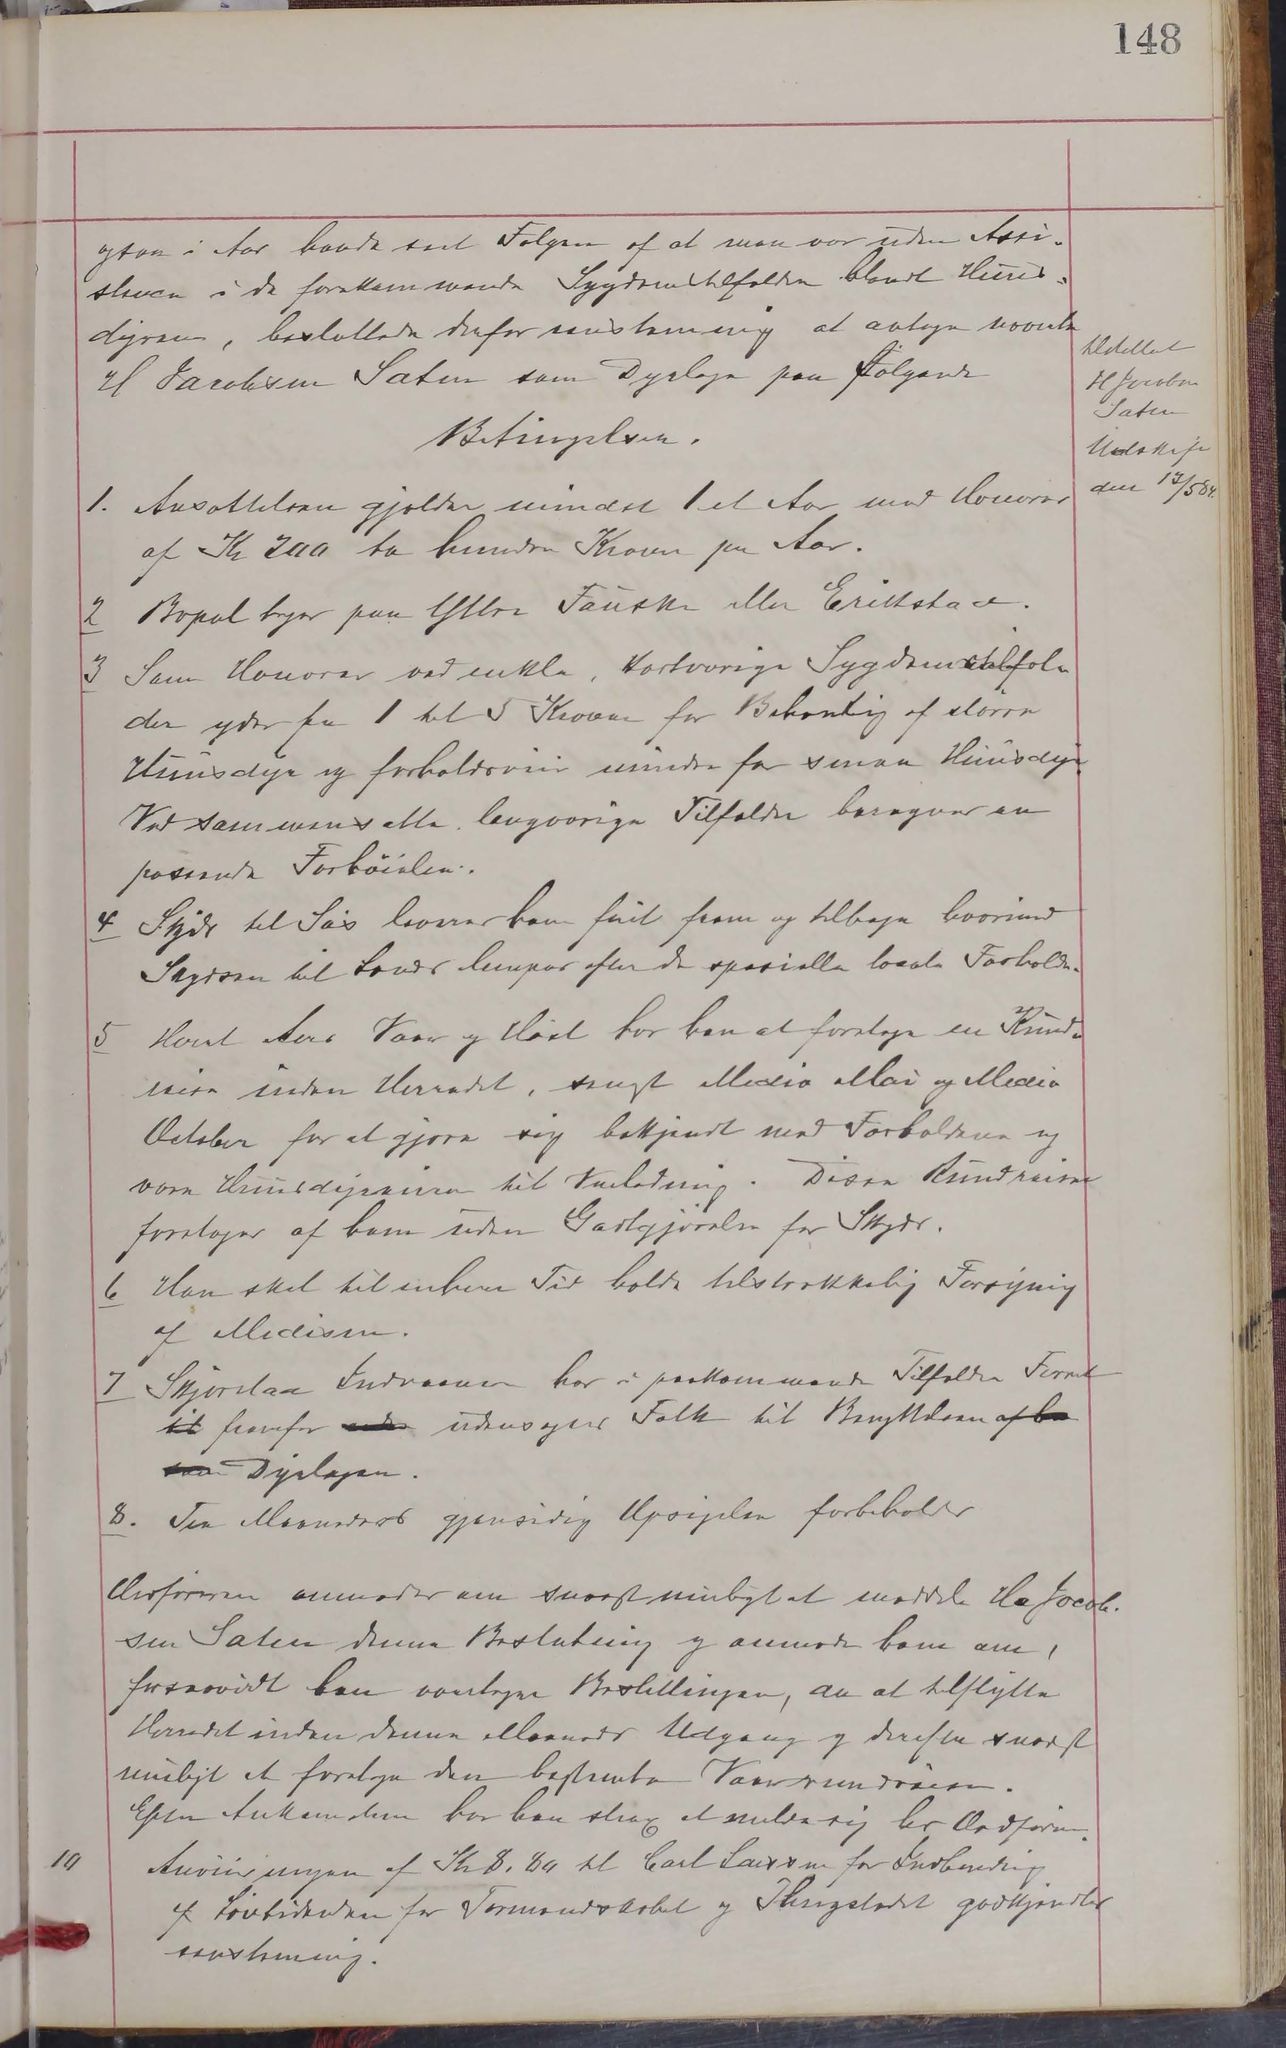 148
ogsaa i Aar havde seet Følgen af at man var uden Assi-
stance i de forekommende Sygdomstilfælder blandt Huus-
dyrene, besluttede derfor eenstemmig at antage nævnte
H Jacobsen Saten som Dyrlæge paa følgende
Betingelser.
tilstillet
H Jacobsen
Saten
Udskrift
den 17/5 84.
1. Ansættelsen gjælder mindst 1 et Aar med Honorar
af Kr 200 to hundre Kroner pr Aar.
2 Bopæl tages paa Østre Fauske eller Erikstad.
3 Som Honorar ved enkle, kortvarige Sygdomstilfæl-
der ydes fra 1 til 5 Kroner for Behandlig af større
Huusdyr og forholdsviis mindre for smaa Huusdyr.
Ved sammensatte langvarige Tilfælder beregnes en
passende Forhøielse.
4 Skyds til Søs leveres ham frit frem og tilbage hvorimod
Skydsen til Lands lempes efter de specielle locale Forholde.
5 Hvert Aars Vaar og Høst har han at foretage en Rund-
reise inden Herredet, senest Medio Mai og Medio
October for at gjøre sig bekjendt med Forholdene og
være Huusdyreierne til Veiledning. Disse Rundreiser
foretages af ham uden Godtgjørelse for Skyds.
6 Han skal til enhver Tid holde tilstrækkelig Forsyning
af Medisin.
7 Skjerstad Indvaanere har i paakommende Tilfælde Forret
til fremfor udensogns Folk til Benyttelsen af
Dyrlægen.
8. Tre Maaneders gjensidig Opsigelse forbeholdes
Ordføreren anmodes om snarest muligt at meddele Hr Jacob-
sen Saten denne Beslutning og anmode ham om,
forsaavidt han overtager Bestillingen, da at tilflytte
Herredet inden denne Maaneds Udgang og derefter snarest
muligt at foretage den bestemte Vaarrundreise.
Efter Ankomsten har han strax at melde sig hos Ordføreren.
10 Anviisningen af Kr 8.80 til Carl Larssen for Indbinding
af Lovtidenden for Formandskabet og Thingstedet godkjendtes
eenstemmig.